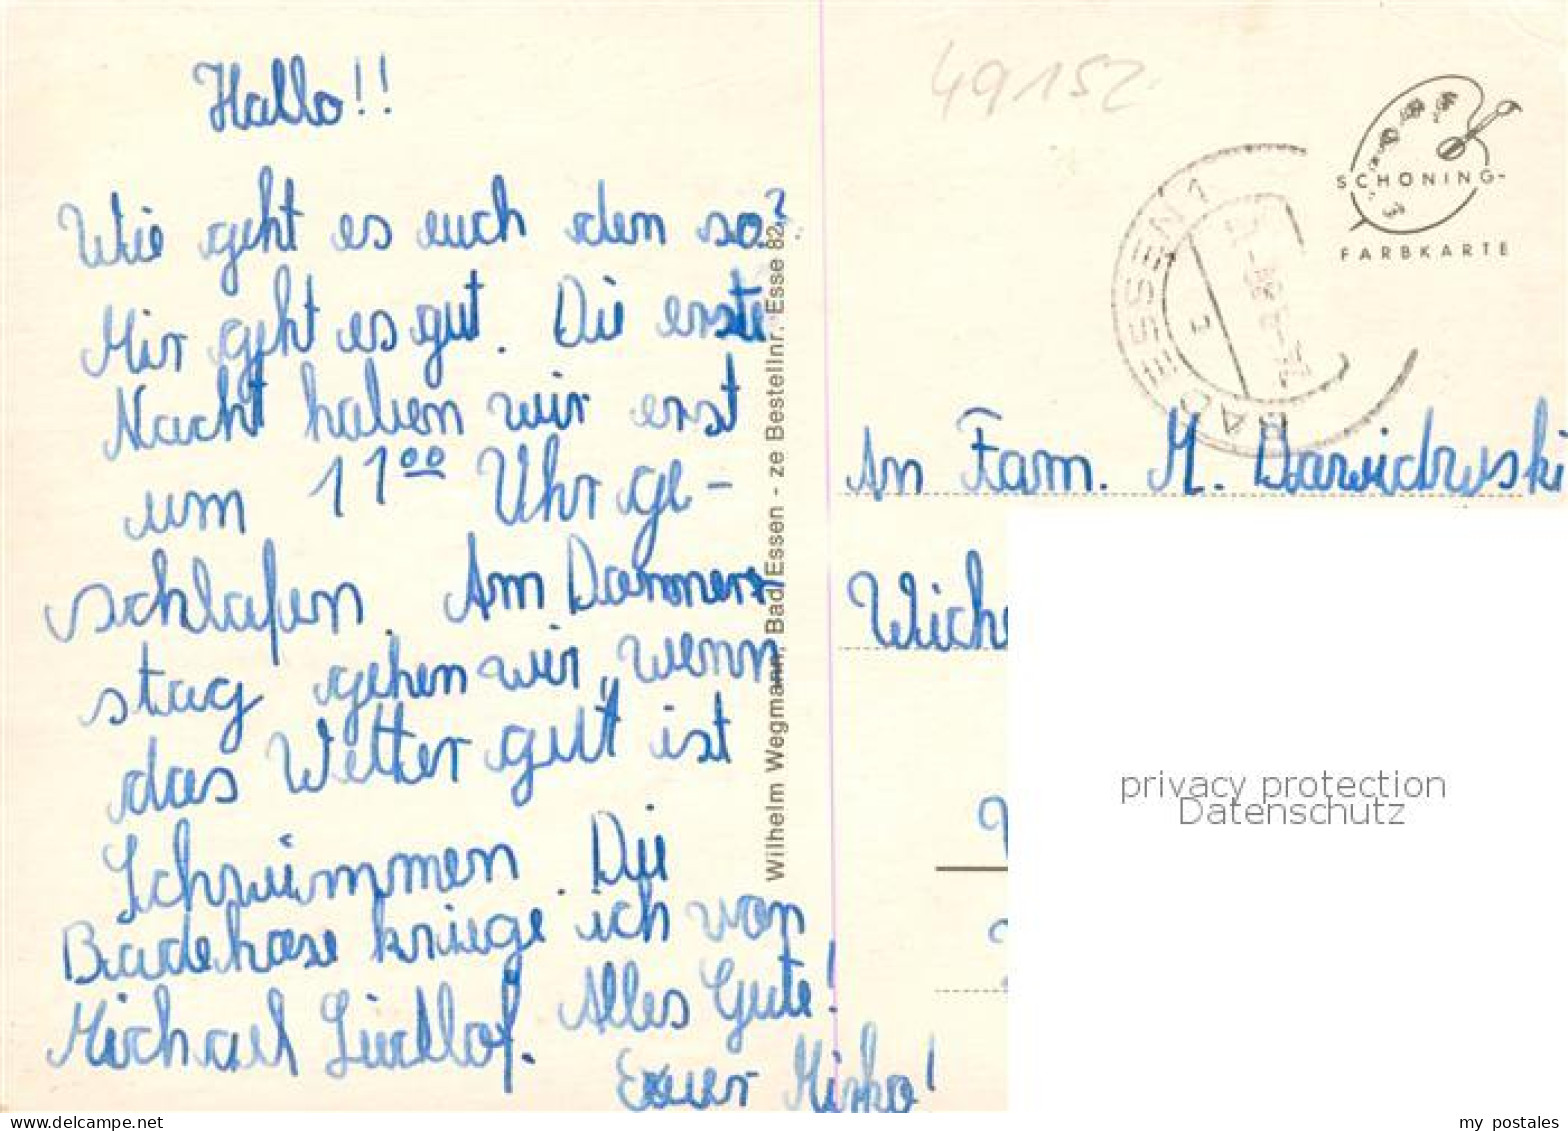 Hallo!!
Wie geht es euch den so?
Mir geht es gut. Die erste
Nacht haben wir erst
um 11⁰⁰ Uhr ge-
schlafen. Am Donners
stag gehen wir, wenn
das Wetter gut ist
Schwimmen. Die
Badehose kriege ich von
Michael
Alles Gute!
Euer Mirko!
Wilhelm Wegmann, Bad Essen - ze Bestellnr. Esse 82
49152
SCHÖNING-
FARBKARTE
BAD ESSEN 1
An Fam. M. Dawidzyski
privacy protection
Datenschutz
delcampe.net
my postales